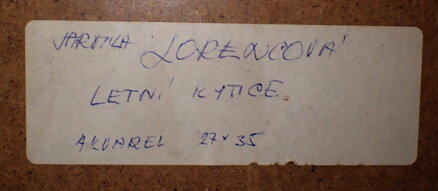 JARMILA LORENCOVÁ
LETNÍ KYTICE
AKVAREL 27x35